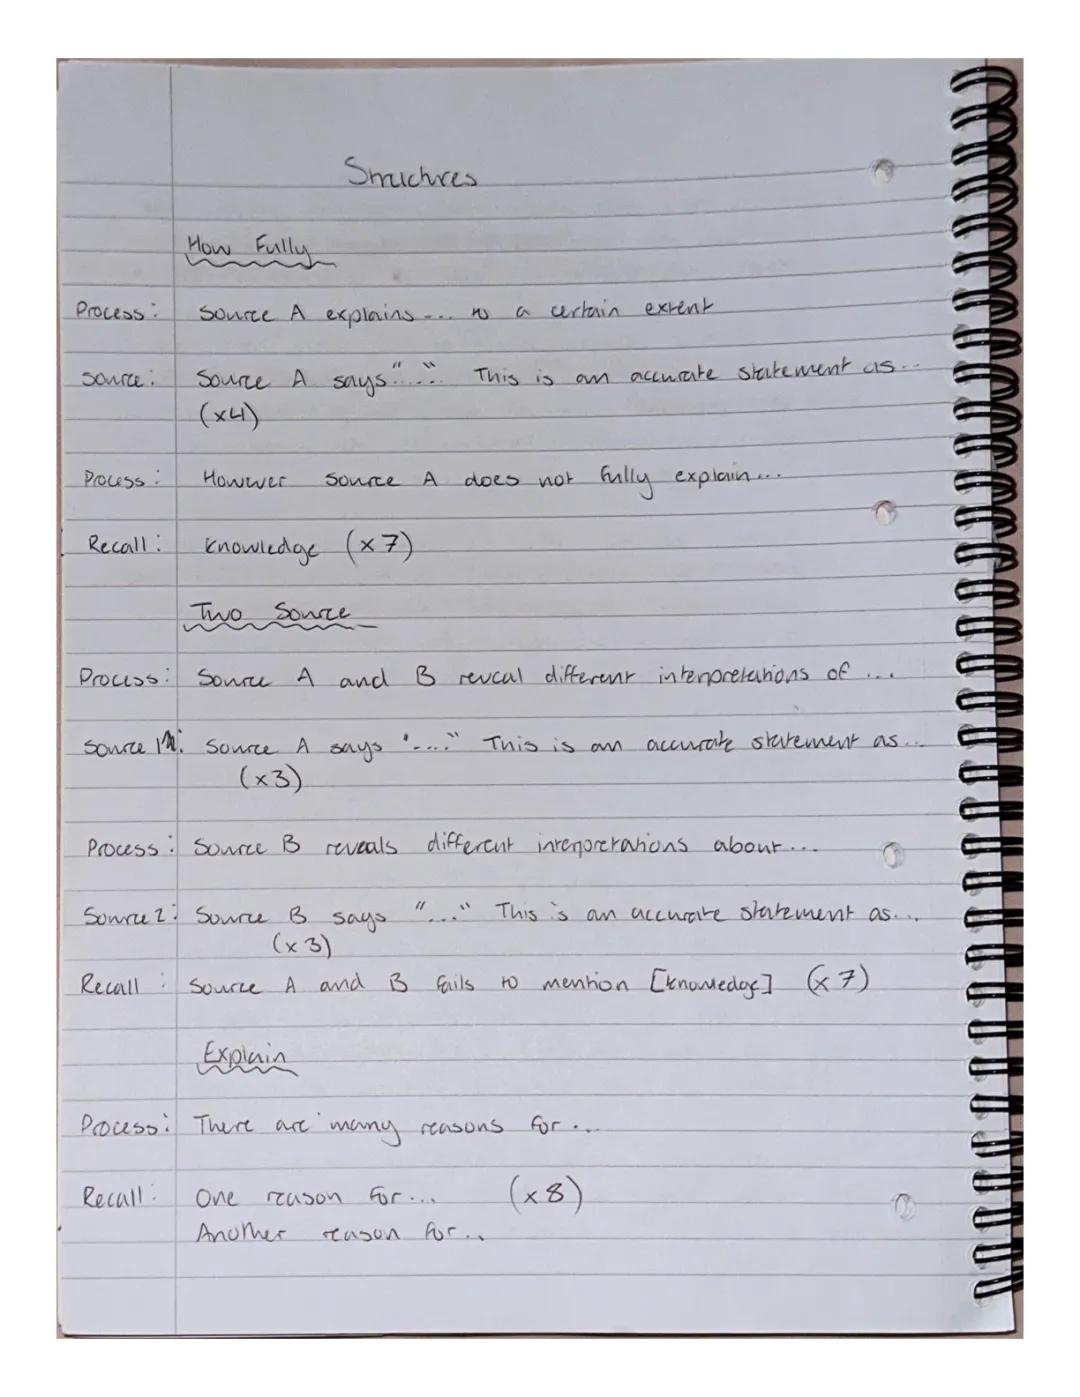 Structures
How Fully
Process: Source A explains... to a certain extent
Source: Source A says "...." This is an accurate statement as...
(x4)
Process: However source A does not fully explain...
Recall: Knowledge (x7)
Two Source
Process: Source A and B reveal different interpretations of ...
Source 1: Source A says "...." This is an accurate statement as...
(x3)
Process: Source B reveals different interpretations about...
Source 2: Source B says "..." This is an accurate statement as...
(x3)
Recall: Source A and B fails to mention [knowledge] (x7)
Explain
Process: There are many reasons for...
Recall: One reason for... (x8)
Another reason for..